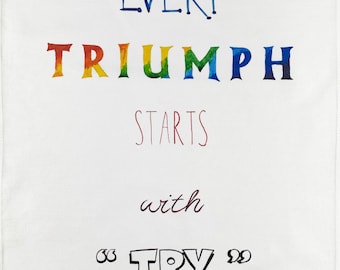 EVERY
TRIUMPH
STARTS
with
“TRY”